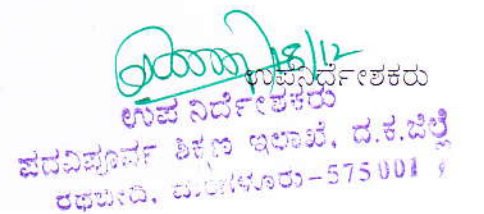 18/12
ಉಪನಿರ್ದೇಶಕರು
ಉಪ ನಿರ್ದೇಶಕರು
ಪದವಿಪೂರ್ವ ಶಿಕ್ಷಣ ಇಲಾಖೆ, ದ.ಕ.ಜಿಲ್ಲೆ
ರಥಬೀದಿ, ಮಂಗಳೂರು-575001